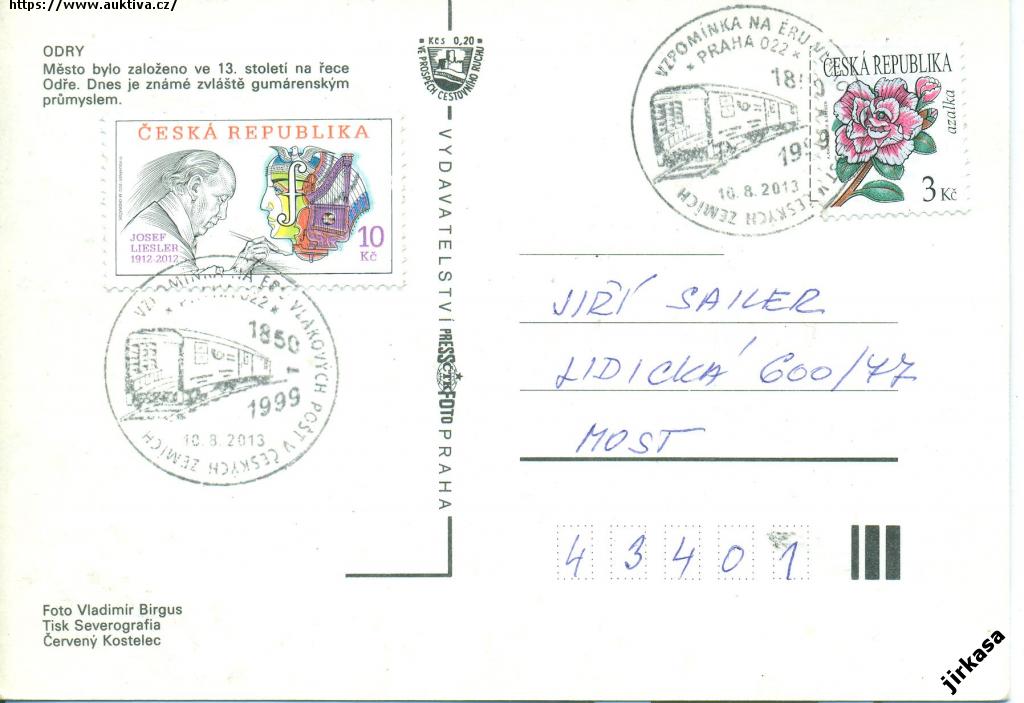 https://www.auktiva.cz/
ODRY
Město bylo založeno ve 13. století na řece
Odře. Dnes je známé zvláště gumárenským
průmyslem.
ČESKÁ REPUBLIKA
JOSEF
LIESLER
1912-2012
10
Kč
VZPOMÍNKA NA ÉRU VLAKOVÝCH POŠT V ČESKÝCH ZEMÍCH
* PRAHA 022 *
1850
1999
10.8.2013
Kčs 0,20
VE PROSPĚCH CESTOVNÍHO RUCHU
VYDAVATELSTVÍ PRESSFOTO PRAHA
ČTK
VZPOMÍNKA NA ÉRU POŠT V ČESKÝCH ZEMÍCH
* PRAHA 022 *
1850
1999
10.8.2013
ČESKÁ REPUBLIKA
azalka
3 Kč
JIŘÍ SAILER
LIDICKÁ 600/77
MOST
43401
Foto Vladimír Birgus
Tisk Severografia
Červený Kostelec
jirkasa